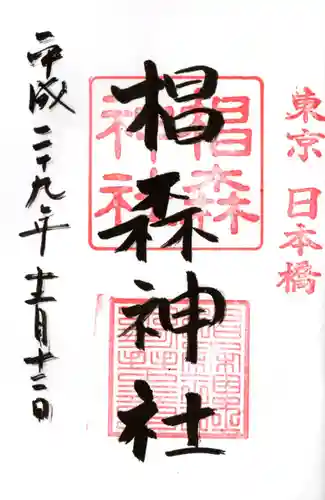 東京 日本橋
椙森神社
椙森神社
平成二十九年十二月十二日